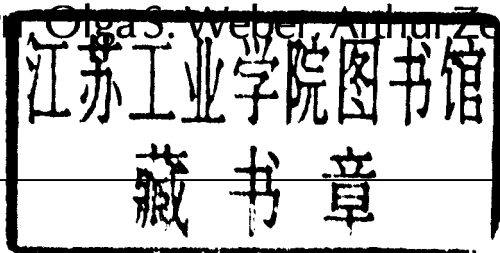 Olga S. Weber Arthur Ze
江苏工业学院图书馆
藏书章